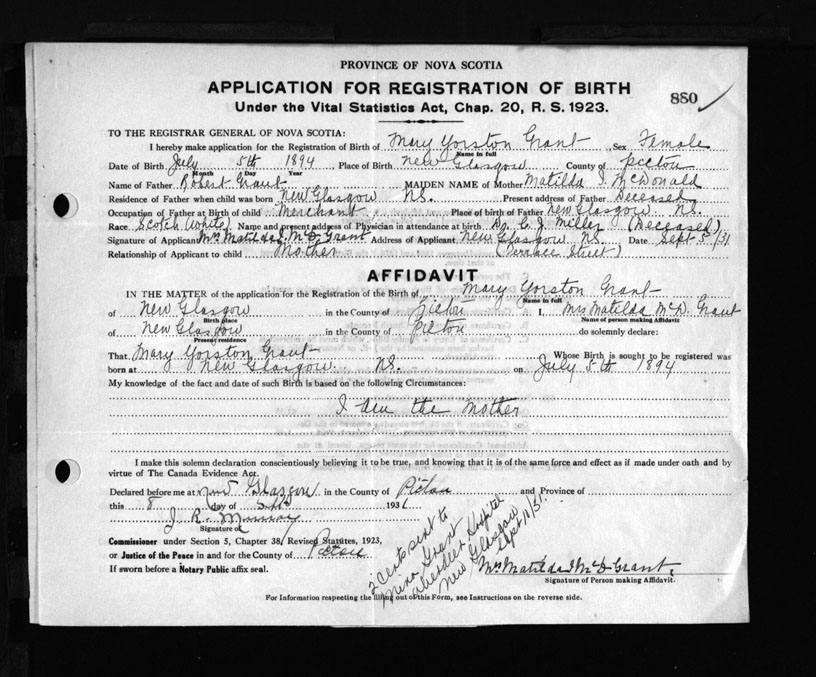 PROVINCE OF NOVA SCOTIA
APPLICATION FOR REGISTRATION OF BIRTH
880
Under the Vital Statistics Act, Chap. 20, R. S. 1923.
TO THE REGISTRAR GENERAL OF NOVA SCOTIA:
I hereby make application for the Registration of Birth of Mary Yorston Grant, Sex Female
Name in full
Date of Birth July 5th 1894 Place of Birth New Glasgow County of Pictou
Month Day Year
Name of Father Robert Grant MAIDEN NAME of Mother Matilda J. McDonald
Residence of Father when child was born New Glasgow NS. Present address of Father Deceased
Occupation of Father at Birth of child Merchant Place of Birth of Father New Glasgow NS.
Race Scotch (White) Name and present address of Physician in attendance at birth Dr. C J. Miller (Deceased)
Signature of Applicant Mrs Matilda J. McD. Grant Address of Applicant New Glasgow NS. Date Sept 5/31
Relationship of Applicant to child Mother (Terrace Street)
AFFIDAVIT
IN THE MATTER of the application for the Registration of the Birth of Mary Yorston Grant
Name in full
of New Glasgow in the County of Pictou I, Mrs Matilda McD. Grant
Birth place Name of person making Affidavit
of New Glasgow in the County of Pictou do solemnly declare:
Present residence
That Mary Yorston Grant Whose Birth is sought to be registered was
born at New Glasgow NS. on July 5th 1894
My knowledge of the fact and date of such Birth is based on the following Circumstances:
I am the Mother
I make this solemn declaration conscientiously believing it to be true, and knowing that it is of the same force and effect as if made under oath and by
virtue of The Canada Evidence Act.
Declared before me at New Glasgow in the County of Pictou and Province of
this 8 day of Sept 1931
J. R. Murray
Signature of
Commissioner under Section 5, Chapter 38, Revised Statutes, 1923,
or Justice of the Peace in and for the County of Pictou
If sworn before a Notary Public affix seal.
2 certs sent to
Grant
Aberdeen Hospital
New Glasgow
Sept 11/31.
Mrs Matilda J McD Grant.
Signature of Person making Affidavit.
For Information respecting the filling out of this Form, see Instructions on the reverse side.